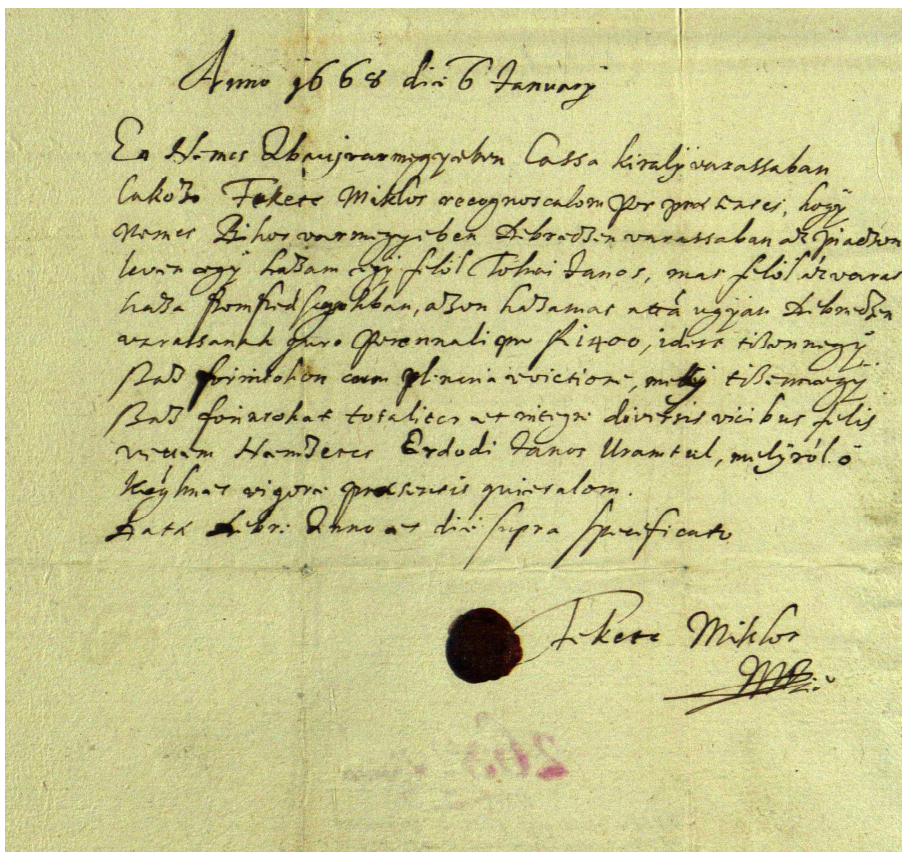 Anno 1668 die 6 January
En Nemes Abaujvarmegyeben Cassa kiralÿ varassaban
lakozo Fekete Miklos recognoscalom per præsentes, hogÿ
Nemes Bihor varmegyeben Debreczen varassaban az piaczon
leven egÿ hazam egÿ felöl Tokai Janos, mas felöl az varas
haza szomszedsagokban, azon hazamat attã ugÿan Debreczen
varassanak jure perennali pro fl 1400, idest tizennegÿ
szaz forintokon cum plenaria evictione, melÿ tizennegÿ
szaz forintokat totaliter et integre diversis vicibus fel is
vettem Nemzetes Erdödi Janos Uramtul, melÿröl ö
keÿlmet vigore præsentis quietalom.
Data Debre: Anno et die supra specificato
Fekete Miklos